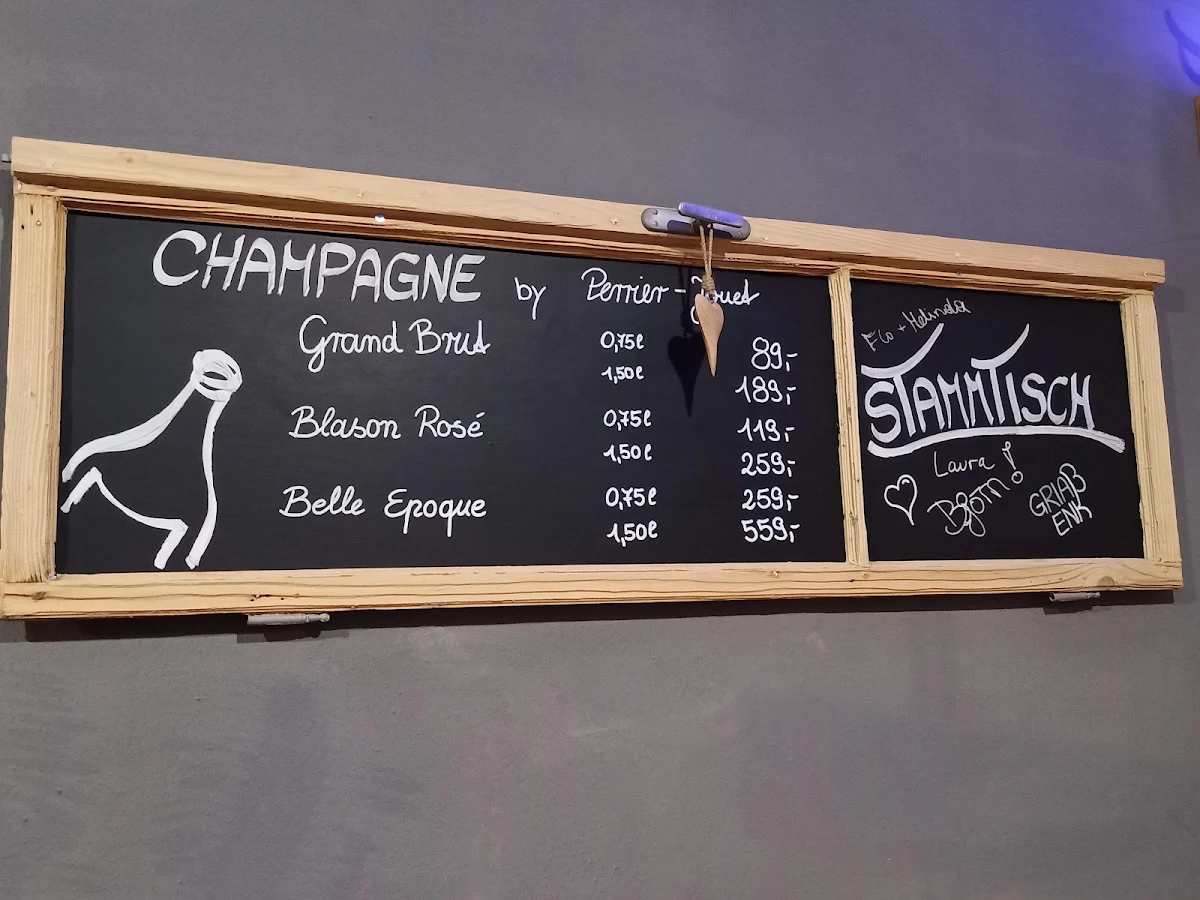 CHAMPAGNE by Perrier-Jouet
Grand Brut 0,75l 89,-
1,50l 189,-
Blason Rosé 0,75l 119,-
1,50l 259,-
Belle Epoque 0,75l 259,-
1,50l 559,-
Flo + Melinda
STAMMTISCH
Laura
Björn!
GRIAß
ENK